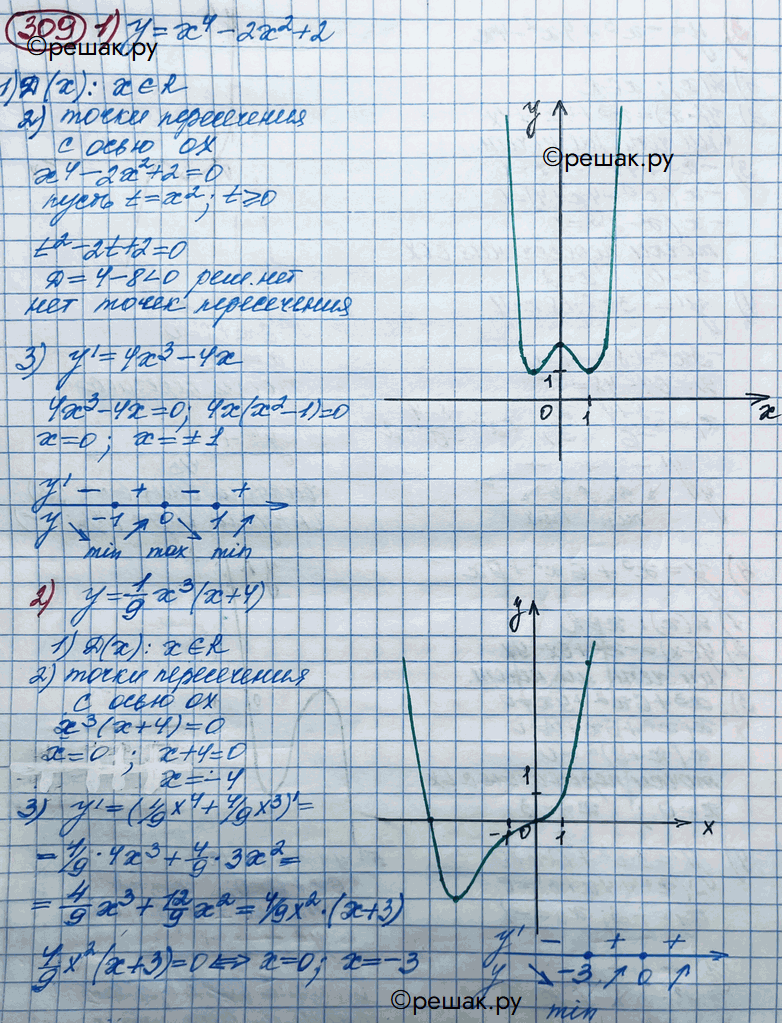 309 1) y = x⁴ - 2x² + 2
©решак.ру
1) D(x): x ∈ R
2) точки пересечения
с осью OX
x⁴ - 2x² + 2 = 0
пусть t = x²; t ≥ 0
t² - 2t + 2 = 0
D = 4 - 8 < 0 реш. нет
нет точек пересечения
3) y' = 4x³ - 4x
4x³ - 4x = 0; 4x(x² - 1) = 0
x = 0; x = ± 1
y' - + - +
y -1 0 1
min max min
y
©решак.ру
1
0 1 x
2) y = 1/9 x³(x+4)
1) D(x): x ∈ R
2) точки пересечения
с осью OX
x³(x+4) = 0
x = 0; x+4 = 0
x = -4
3) y' = (1/9 x⁴ + 4/9 x³)' =
= 1/9 · 4x³ + 4/9 · 3x² =
= 4/9 x³ + 12/9 x² = 4/9 x² · (x+3)
4/9 x² (x+3) = 0 ⇔ x = 0; x = -3
y
1
-1 0 1 x
y' - + +
y -3 0
min
©решак.ру